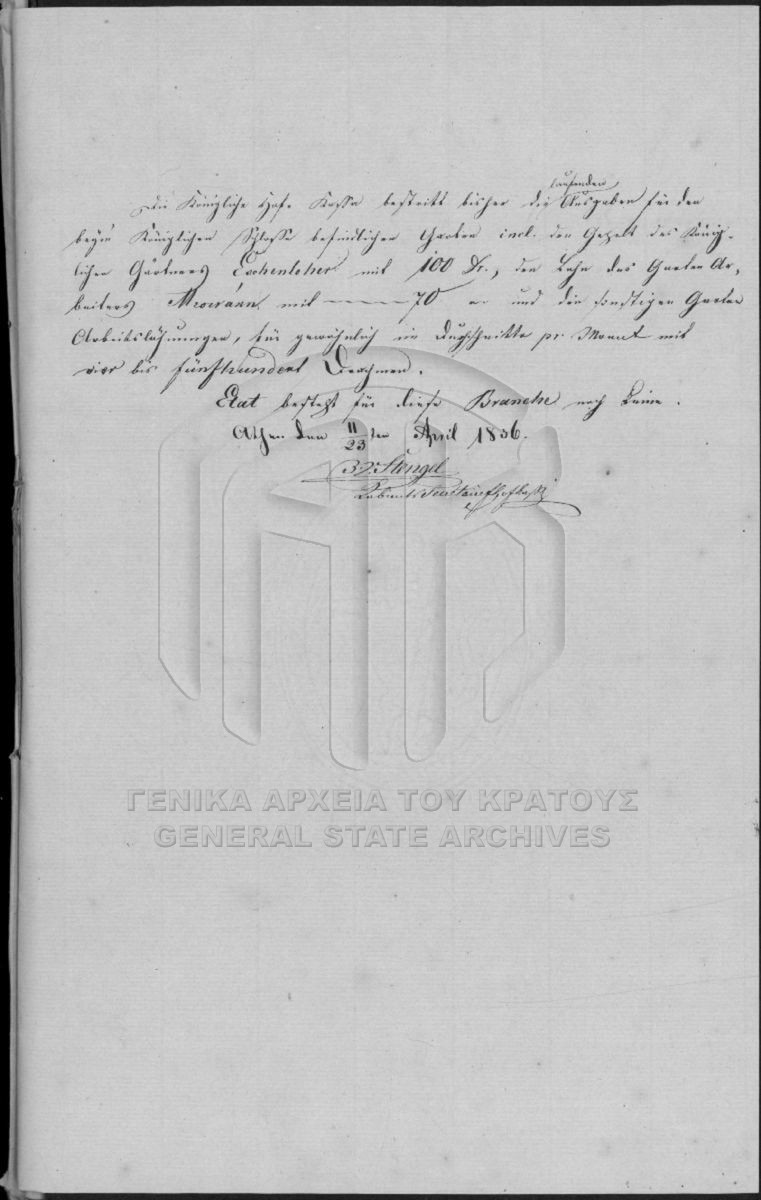 laufenden
Die Königliche Hof-Kassa bestritt bisher die Ausgaben für den
beym Königlichen Schlosse befindlichen Garten incl. den Gehalt des König-
lichen Gärtners Eschenloher mit 100 Dr., den Lohn des Garten Ar-
beiters mit 70 und die sonstigen Garten
Arbeitslöhnungen, für gewöhnlich im Durchschnitte pr. Monat mit
vier bis fünfhundert Drachmen.
Etat besteht für diese Branche noch keine.
Athen den 11/23ten April 1836.
Stengel
ΓΕΝΙΚΑ ΑΡΧΕΙΑ ΤΟΥ ΚΡΑΤΟΥΣ
GENERAL STATE ARCHIVES